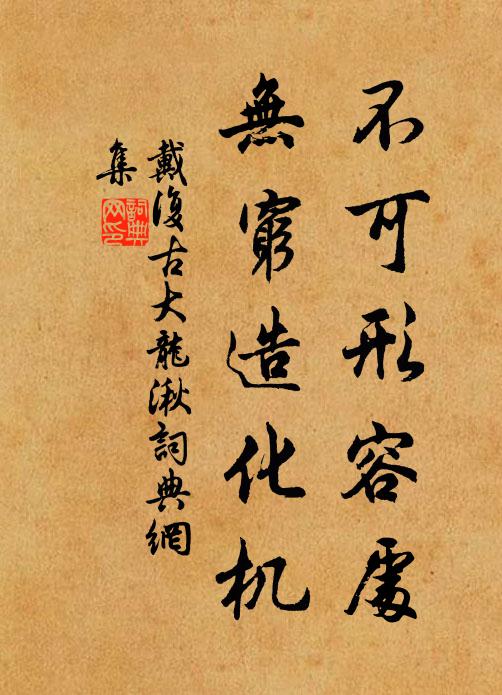 不可形容處
無窮造化机
戴復古大龍湫詞典網
集
詞典
网印